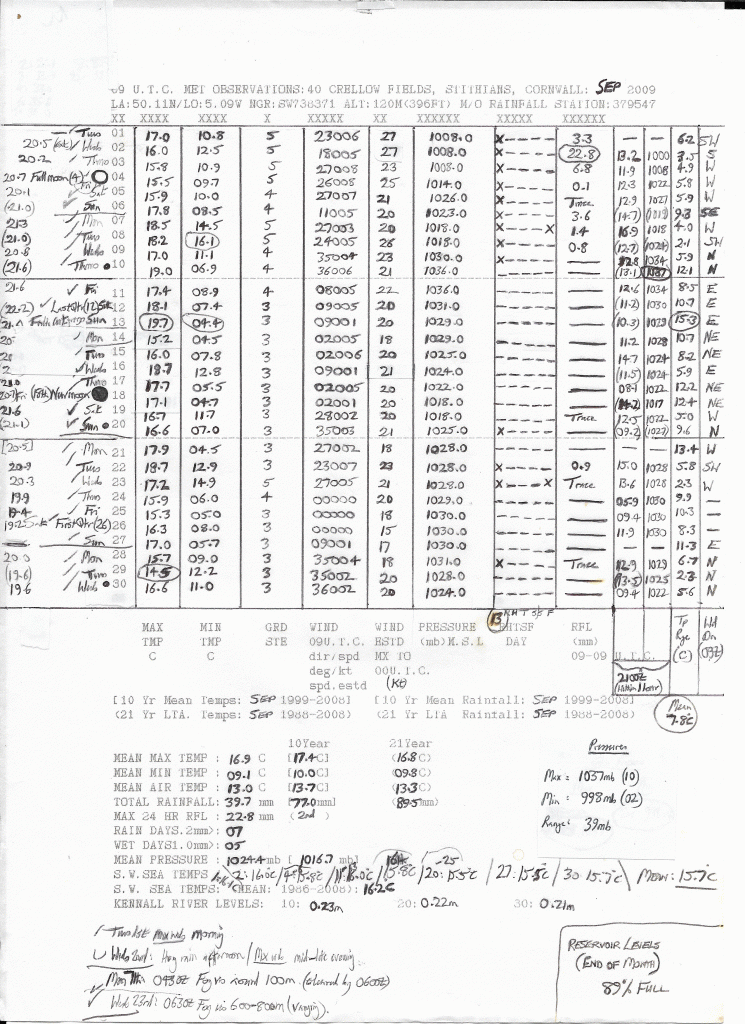 09 U.T.C. MET OBSERVATIONS:40 CRELLOW FIELDS, STITHIANS, CORNWALL: SEP 2009
LA:50.11N/LO:5.09W NGR:SW738371 ALT:120M(396FT) M/O RAINFALL STATION:379547
XX XXXX XXXX X XXXXX XX XXXXXX XXXXX XXXXXX
Tues 01 17.0 10.8 5 23006 27 1008.0 X----- 3.3 — — 6.2 SW
Weds 02 16.0 12.5 5 18005 27 1008.0 X----- 22.8 13.2 1000 3.5 S
20.2 Thurs 03 15.8 10.9 5 27008 23 1008.0 X----- 6.8 11.9 1008 4.9 W
20.7 Full moon (4) Fri 04 15.5 09.7 5 26008 25 1014.0 X----- 0.1 12.3 1022 5.8 W
20.1 Sat 05 15.9 10.0 4 27007 21 1026.0 X----- Trace 12.9 1027 5.9 W
(21.0) Sun 06 17.8 08.5 4 11005 20 1023.0 X----- 3.6 (14.7) (1019) 9.3 SE
21.3 Mon 07 18.5 14.5 5 27003 20 1018.0 X-----X 1.4 16.9 1018 4.0 W
(21.0) Tues 08 18.2 16.1 5 24005 26 1018.0 X----- 0.8 (12.7) (1024) 2.1 SW
20.8 Weds 09 17.0 11.1 4 35004 23 1030.0 X----- — 12.8 1034 5.9 N
(21.6) Thurs 10 19.0 06.9 4 36006 21 1036.0 ------ — (13.1) 1037 12.1 N
21.6 Fri 11 17.4 08.9 4 08005 22 1036.0 ------ — 12.6 1034 8.5 E
(22.2) Last Qtr (12) Sat 12 18.1 07.4 3 09005 20 1031.0 ------ — (11.2) 1030 10.7 E
Sun 13 19.7 04.4 3 09001 20 1029.0 ------ — (10.3) 1029 15.3 E
Mon 14 15.2 04.5 3 02005 18 1029.0 ------ — 11.2 1028 10.7 NE
Tues 15 16.0 07.8 3 02006 20 1025.0 ------ — 14.7 1024 8.2 NE
Weds 16 18.7 12.8 3 09001 21 1024.0 ------ — (11.5) 1024 5.9 E
21.0 Thurs 17 17.7 05.5 3 02005 20 1022.0 ------ — 08.1 1022 12.2 NE
Fri New moon 18 17.1 04.7 3 02001 20 1018.0 ------ — 1017 12.4 NE
21.6 Sat 19 16.7 11.7 3 28002 20 1018.0 ------ Trace 12.5 1022 5.0 W
(21.1) Sun 20 16.6 07.0 3 35003 21 1025.0 X----- — (09.2) (1027) 9.6 N
[20.5] Mon 21 17.9 04.5 3 27002 18 1028.0 ------ — 13.4 W
20.9 Tues 22 18.7 12.9 3 23007 23 1028.0 X----- 0.9 15.0 1028 5.8 SW
20.3 Weds 23 17.2 14.9 5 27005 21 1028.0 X-----X Trace 13.6 1028 2.3 W
19.9 Thurs 24 15.9 06.0 4 00000 20 1029.0 ------ — 05.9 1030 9.9 —
19.4 Fri 25 15.3 05.0 3 00000 18 1030.0 ------ — 09.4 1030 10.3 —
19.2 Sat First Qtr (26) 26 16.3 08.0 3 00000 15 1030.0 ------ — 11.9 1030 8.3 —
Sun 27 17.0 05.7 3 09001 17 1030.0 ------ — — — 11.3 E
20.0 Mon 28 15.7 09.0 3 35004 18 1031.0 X----- Trace 12.9 1029 6.7 N
(19.6) Tues 29 14.5 12.2 3 35002 20 1028.0 ------ — (13.5) 1025 2.3 N
19.6 Weds 30 16.6 11.0 3 36002 20 1024.0 ------ — 09.4 1022 5.6 N
13 RHTSFF
MAX MIN GRD WIND WIND PRESSURE RHTSF RFL Tp Wd
TMP TMP STE 09U.T.C. ESTD (mb)M.S.L DAY (mm) Rge Dn
C C dir/spd MX TO 09-09 U.T.C. (C) (09Z)
deg/kt 00U.T.C. 2100Z
spd.estd (kt) (within 1 hour)
[10 Yr Mean Temps: SEP 1999-2008] [10 Yr Mean Rainfall: SEP 1999-2008] Mean
(21 Yr LTA. Temps: SEP 1988-2008) (21 Yr LTA Rainfall: SEP 1988-2008) 7.8c
10Year 21Year Pressures
MEAN MAX TEMP : 16.9 C [17.4C] (16.8C)
MEAN MIN TEMP : 09.1 C [10.0C] (09.8C) Max = 1037mb (10)
MEAN AIR TEMP : 13.0 C [13.7C] (13.3C)
TOTAL RAINFALL: 39.7 mm [77.0mm] (89.5mm) Min = 998mb (02)
MAX 24 HR RFL : 22.8 mm (2nd)
RAIN DAYS.2mm): 07 Range: 39mb
WET DAYS1.0mm): 05
MEAN PRESSURE : 1024.4mb [ 1016.7 mb]
S.W. SEA TEMPS 2: 16.0c / 15.8c / 20: 15.5c / 27: 15.5c / 30 15.7c Mean: 15.7c
S.W. SEA TEMPS: (MEAN: 1986-2008): 16.2c
KENNALL RIVER LEVELS: 10: 0.23m 20: 0.22m 30: 0.21m
Tues 1st morning
Weds 2nd: Hvy rain afternoon / mid-late evening.
Mon 7th 0430Z Fog vis around 100m (cleared by 0600Z)
Weds 23rd: 0630Z Fog vis 600-800m (varying).
RESERVOIR LEVELS
(END OF MONTH)
89% FULL